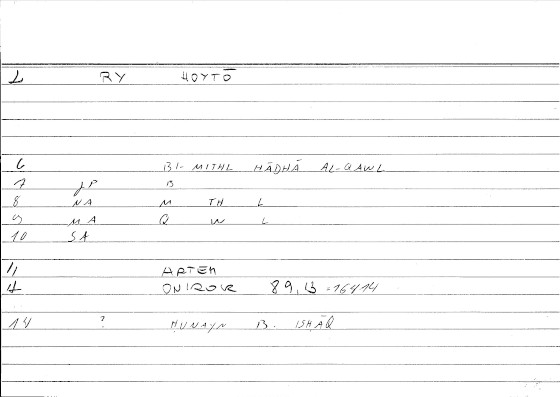 1 RY HOYTŌ
6 BI-MITHL HĀDHĀ AL-QAWL
7 JP B
8 NA M TH L
9 MA Q W L
10 SA
11 ARTEM
4 ONIROCR 89,13 = 16414
14 ? ḤUNAYN B. ISḤĀQ